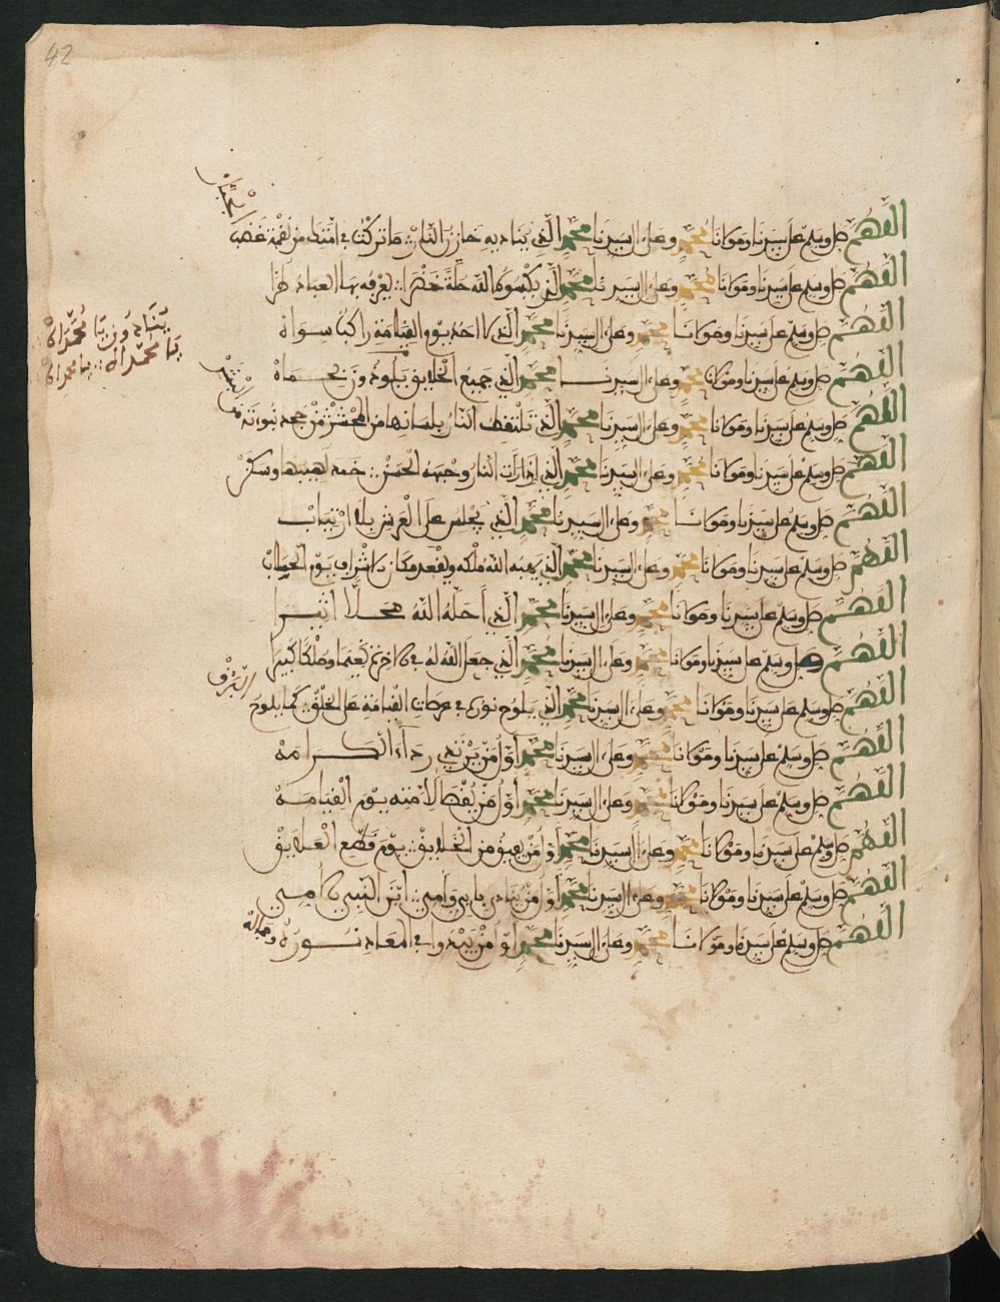 42
اللهم صل وسلم على سيدنا ومولانا محمد وعلى ال سيدنا محمد الذي يناديه خازن النار ما تركت في امتك من نقمة غضب الجبار
اللهم صل وسلم على سيدنا ومولانا محمد وعلى ال سيدنا محمد الذي يكسوه الله حلة خضرا يعرفه بها العباد طرا
اللهم صل وسلم على سيدنا ومولانا محمد وعلى ال سيدنا محمد الذي لا احد يوم القيامة راكبا سواه
اللهم صل وسلم على سيدنا ومولانا محمد وعلى ال سيدنا محمد الذي جميع الخلايق يلوذون بحماه
ينادون يا محمداه
يا محمداه يا محمداه
اللهم صل وسلم على سيدنا ومولانا محمد وعلى ال سيدنا محمد الذي تلتقط النار بلسانها من المحشر من جحد نبوته من البشر
اللهم صل وسلم على سيدنا ومولانا محمد وعلى ال سيدنا محمد الذي اذا رات النار وجهه الحسن خمد لهيبها وسكن
اللهم صل وسلم على سيدنا ومولانا محمد وعلى ال سيدنا محمد الذي يجلس على العرش بلا ارتياب
اللهم صل وسلم على سيدنا ومولانا محمد وعلى ال سيدنا محمد الذي يهبه الله ملكه ويقعد مكان الاشراف يوم الحساب
اللهم صل وسلم على سيدنا ومولانا محمد وعلى ال سيدنا محمد الذي احله الله محلا اثيرا
اللهم صل وسلم على سيدنا ومولانا محمد وعلى ال سيدنا محمد الذي جعل الله له في الاخرة نعيما وملكا كبيرا
اللهم صل وسلم على سيدنا ومولانا محمد وعلى ال سيدنا محمد الذي يلوح نوره في عرصات القيامة على الخلق كما يلوح البرق
اللهم صل وسلم على سيدنا ومولانا محمد وعلى ال سيدنا محمد اول من يرتدي رداء الكرامه
اللهم صل وسلم على سيدنا ومولانا محمد وعلى ال سيدنا محمد اول من يقضا لامته يوم القيامه
اللهم صل وسلم على سيدنا ومولانا محمد وعلى ال سيدنا محمد اول من يعبو من الخلايق يوم قطع العلايق
اللهم صل وسلم على سيدنا ومولانا محمد وعلى ال سيدنا محمد اول من ينادى اين النبي الامي
اللهم صل وسلم على سيدنا ومولانا محمد وعلى ال سيدنا محمد اول من يبدوا في المعاد نوره وجماله